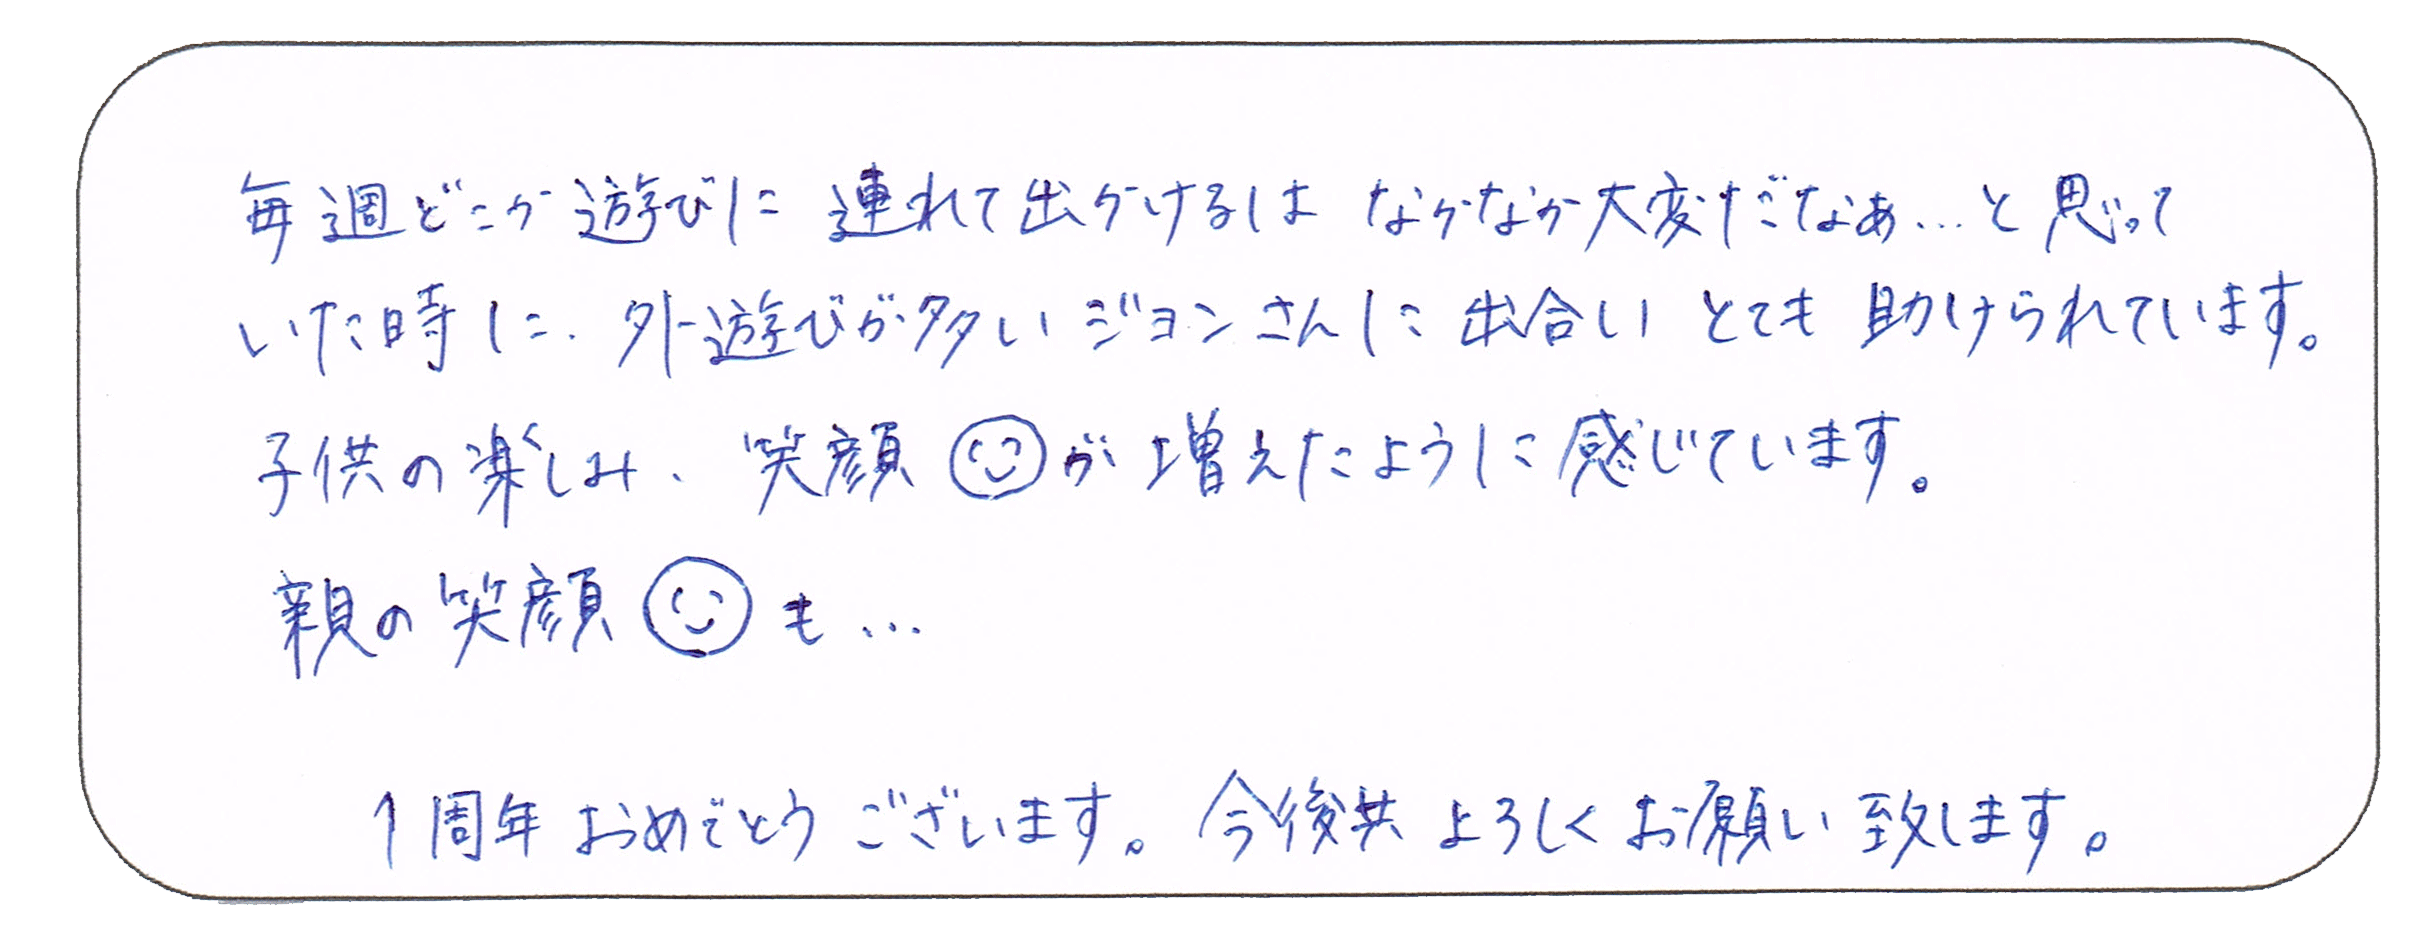 毎週どこか遊びに連れて出かけるは なかなか大変だなぁ…と思って
いた時に、外遊びが多いジョンさんに出合い とても助けられています。
子供の楽しみ、笑顔☺が増えたように感じています。
親の笑顔☺も…
1周年おめでとうございます。今後共よろしくお願い致します。